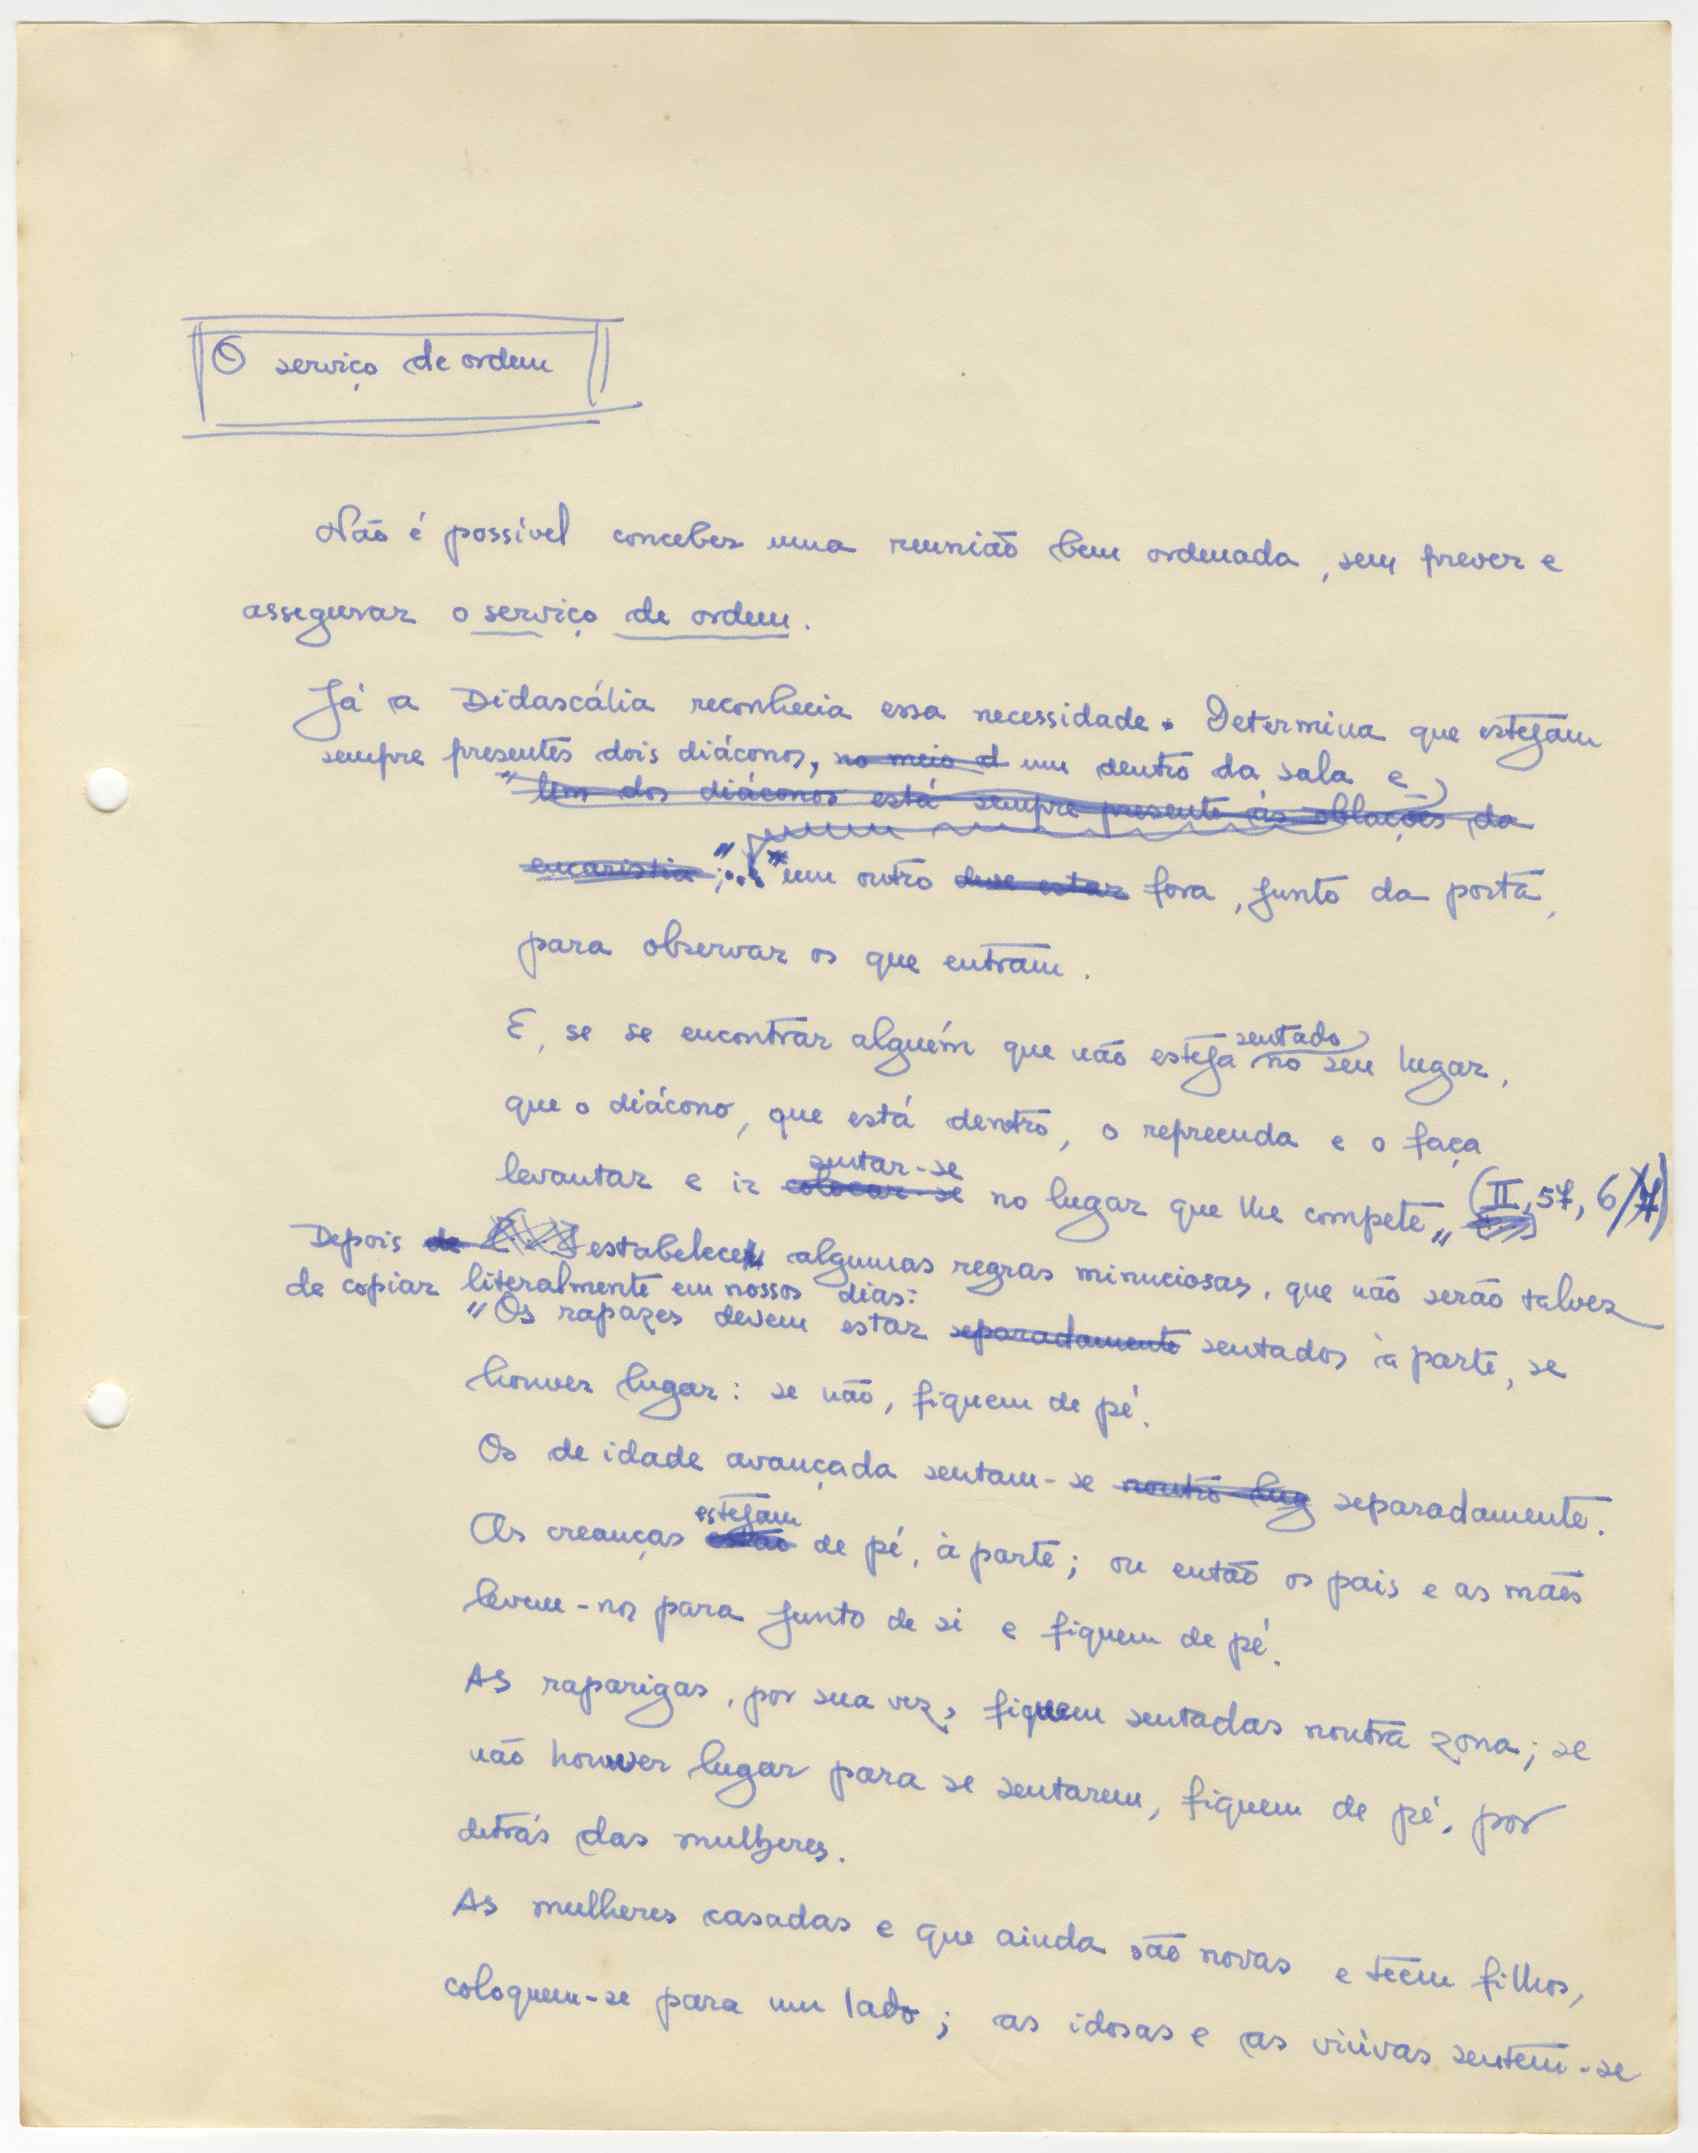 O serviço de ordem
Não é possível conceber uma reunião bem ordenada, sem prever e
assegurar o serviço de ordem.
Já a Didascália reconhecia essa necessidade. Determina que estejam
sempre presentes dois diáconos, no meio d um dentro da sala e
"Um dos diáconos está sempre presente às oblações da
eucaristia; "... "um outro deve estar fora, junto da porta,
para observar os que entram.
E, se se encontrar alguém que não esteja sentado no seu lugar,
que o diácono, que está dentro, o repreenda e o faça
levantar e ir colocar-se sentar-se no lugar que lhe compete" (II, 57, 6/7)
Depois de estabelecer algumas regras minuciosas, que não serão talvez
de copiar literalmente em nossos dias:
"Os rapazes devem estar separadamente sentados à parte, se
houver lugar: se não, fiquem de pé.
Os de idade avançada sentam-se noutro lug separadamente.
As creanças estão estejam de pé, à parte; ou então os pais e as mães
levem-nos para junto de si e fiquem de pé.
As raparigas, por sua vez, fiquem sentadas noutra zona; se
não houver lugar para se sentarem, fiquem de pé, por
detrás das mulheres.
As mulheres casadas e que ainda são novas e teem filhos,
coloquem-se para um lado; as idosas e as viúvas sentem-se